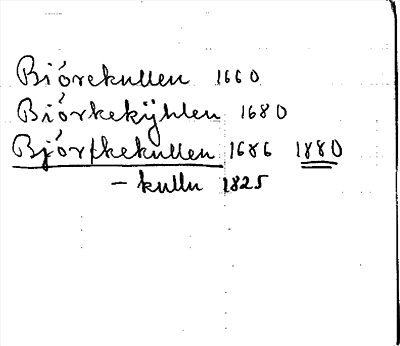 Biórekullen 1660
Biórkekÿhlen 1680
Bjór/kekullen 1686 1880
- kullu 1825